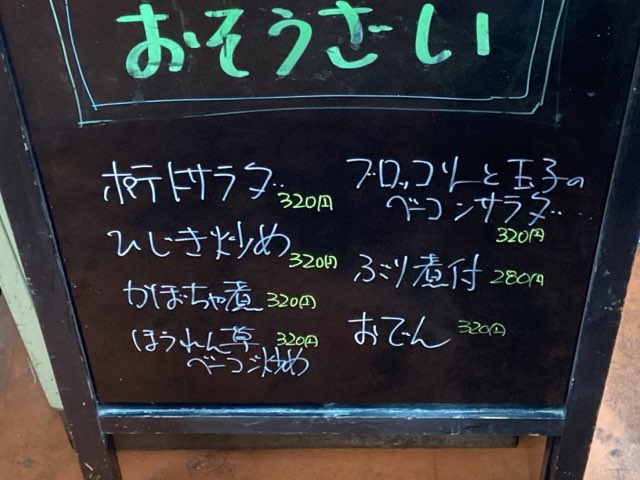 おそうざい
ポテトサラダ 320円
ひじき炒め 320円
かぼちゃ煮 320円
ほうれん草 320円
ベーコン炒め
ブロッコリーと玉子の
ベーコンサラダ
320円
ぶり煮付 280円
おでん 320円